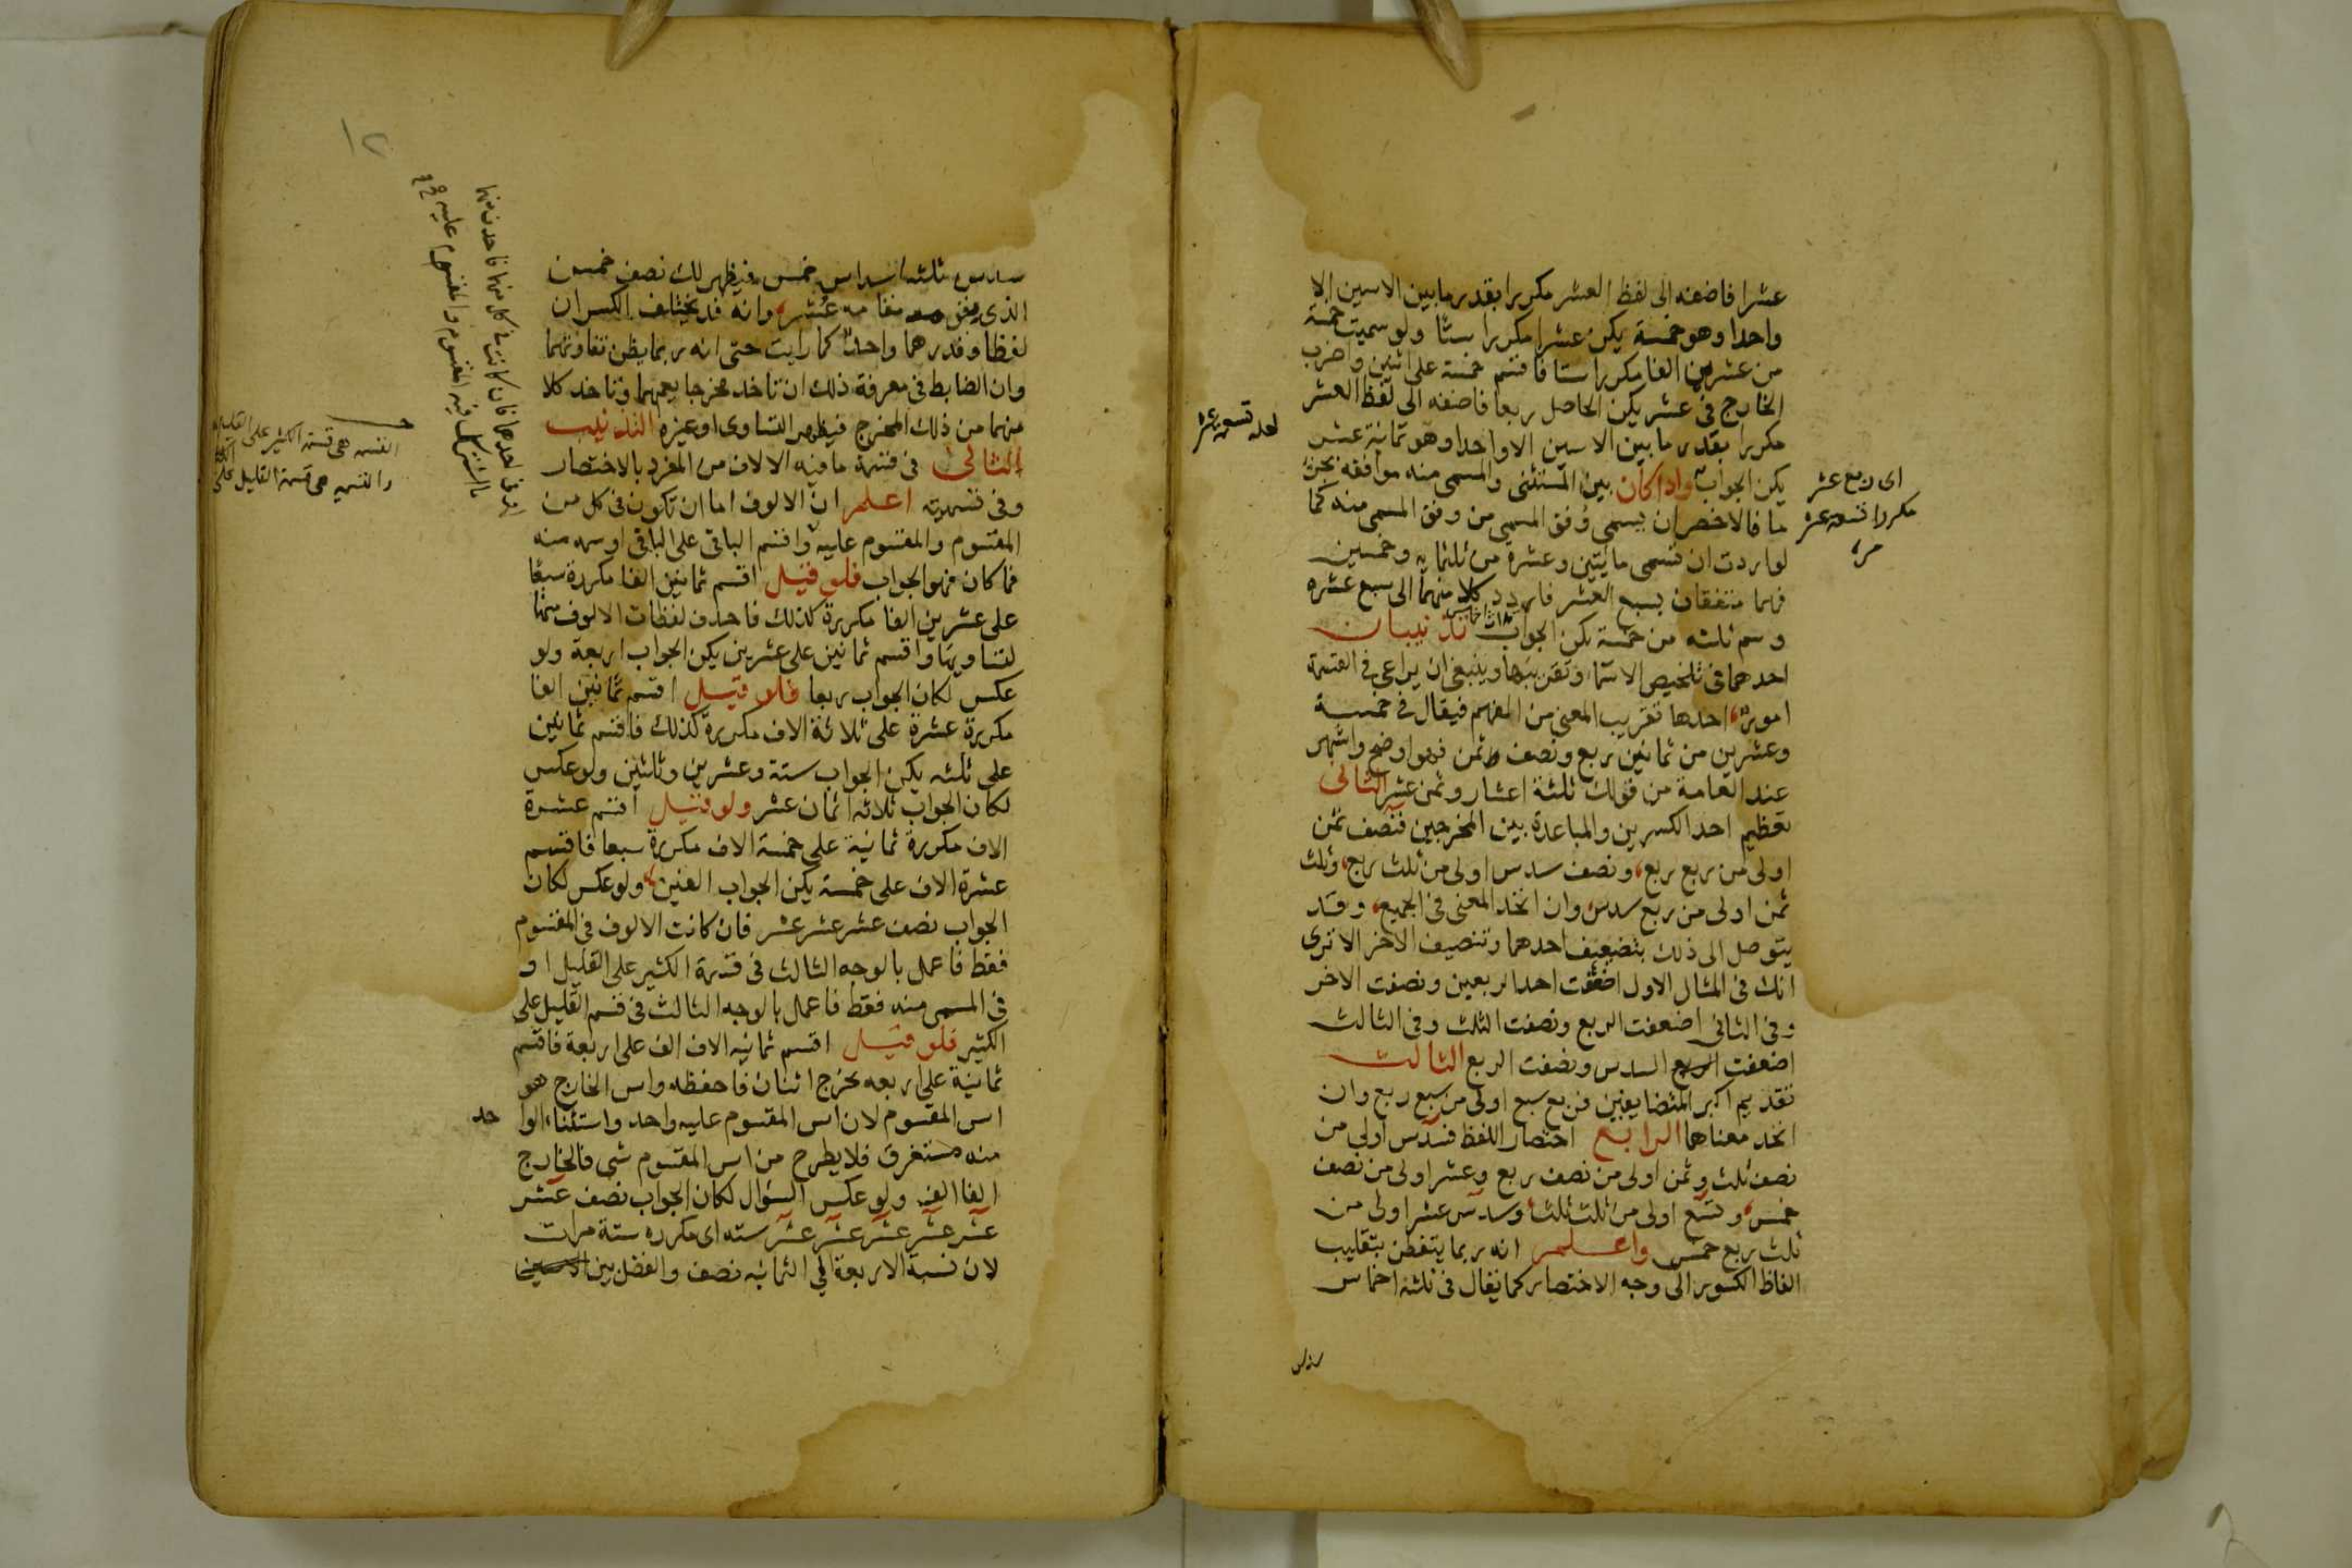 عشرا فاضفه الى لفظ العشر مكررا بقدر ما بين الاسين الا
واحدا وهو خمسة يكن عشرا مكررا ستا ولو سميت خمسة
من عشرين الفا مكررا ستا فاقسم خمسة على اثنين واضرب
الخارج فى عشر يكن الحاصل ربعا فاضفه الى لفظ العشر
مكررا بقدر ما بين الاسين الا واحدا وهو ثمانية عشر
يكن الجواب واذا كان بين المستثنى والمسمى منه موافقة بجزء
ما فالاخصر ان يسمى وفق المسمى من وفق المسمى منه كما
لو اردت ان تسمى مايتين وعشرة من ثلثمايه وخمسين
فهما متفقان بسبع العشر فاردد كلا منهما الى سبع عشره
وسم ثلثه من خمسة يكن الجواب ثلاث اخماس تذنيبان
احدهما فى تلخيص الاسما وتقريبها وينبغى ان يراعى فى القسمة
امور احدها تقريب المعنى من الفهم فيقال فى خمسة
وعشرين من ثمانين ربع ونصف ثمن فهو اوضح واشهر
عند العامة من قولك ثلثة اعشار وثمن عشر الثانى
تعظيم احد الكسرين والمباعدة بين المخرجين فنصف ثمن
اولى من ربع ربع ونصف سدس اولى من ثلث ربع وثلث
ثمن اولى من ربع سدس وان اتحد المعنى فى الجميع وقد
يتوصل الى ذلك بتضعيف احدهما وتنصيف الاخر الا ترى
انك فى المثال الاول اضعفت احد الربعين ونصفت الاخر
وفى الثانى اضعفت الربع ونصفت الثلث وفى الثالث
اضعفت الربع السدس ونصفت الربع الثالث
تقديم اكبر المتضايفين فربع سبع اولى من سبع ربع وان
اتحد معناهما الرابع اختصار اللفظ فسدس اولى من
نصف ثلث وثمن اولى من نصف ربع وعشر اولى من نصف
خمس وتسع اولى من ثلث ثلث وسدس عشر اولى من
ثلث ربع خمس واعلم انه ربما يتفطن بتقليب
الفاظ الكسور الى وجه الاختصار كما يقال فى ثلثة اخماس
سدس
اى ربع عشر
مكررا تسعة عشر
مرة
لعله تسعة عشر
١٢
سدس ثلثه اسداس خمس فيظهر لك نصف خمس
الذى يقوم مقامه عشر وانه قد يختلف الكسران
لفظا وقدرهما واحد كما رايت حتى انه ربما يظن تفاوتهما
وان الضابط فى معرفة ذلك ان تاخذ مخرجا يعمهما وتاخذ كلا
منهما من ذلك المخرج فيظهر التساوى او غيره التذنيب
الثانى فى قسمة ما فيه الالاف من المفرد بالاختصار
وفى تسميته اعلم ان الالوف اما ان تكون فى كل من
المقسوم والمقسوم عليه واقسم الباقى على الباقى او سمه منه
فما كان فهو الجواب فلو قيل اقسم ثمانين الفا مكررة سبعا
على عشرين الفا مكررة كذلك فاحذف لفظات الالوف منهما
لتساويها واقسم ثمانين على عشرين يكن الجواب اربعة ولو
عكس لكان الجواب ربعا فلو قيل اقسم ثمانين الفا
مكررة عشرة على ثلاثة الاف مكررة كذلك فاقسم ثمانين
على ثلثه يكن الجواب ستة وعشرين وثلثين ولو عكس
لكان الجواب ثلاثه اثمان عشر ولو قيل اقسم عشرة
الاف مكررة ثمانية على خمسة الاف مكررة سبعا فاقسم
عشرة الاف على خمسة يكن الجواب الفين ولو عكس لكان
الجواب نصف عشر عشر عشر فان كانت الالوف فى المقسوم
فقط فاعمل بالوجه الثالث فى قسمة الكثير على القليل او
فى المسمى منه فقط فاعمل بالوجه الثالث فى قسم القليل على
الكثير فلو قيل اقسم ثمانيه الاف الف على اربعة فاقسم
ثمانية على اربعه يخرج اثنان فاحفظه واس الخارج هو
اس المقسوم لان اس المقسوم عليه واحد واستثناء الواحد
منه مستغرق فلا يطرح من اس المقسوم شى فالخارج
الفا الف ولو عكس السؤال لكان الجواب نصف عشر
عشر عشر عشر عشر عشر سته اى مكرره ستة مرات
لان نسبة الاربعة الى الثمانيه نصف والفضل بين الاسين
القسمه هى قسمة الكثير على القليل
والتسميه هى قسمة القليل على الكثير